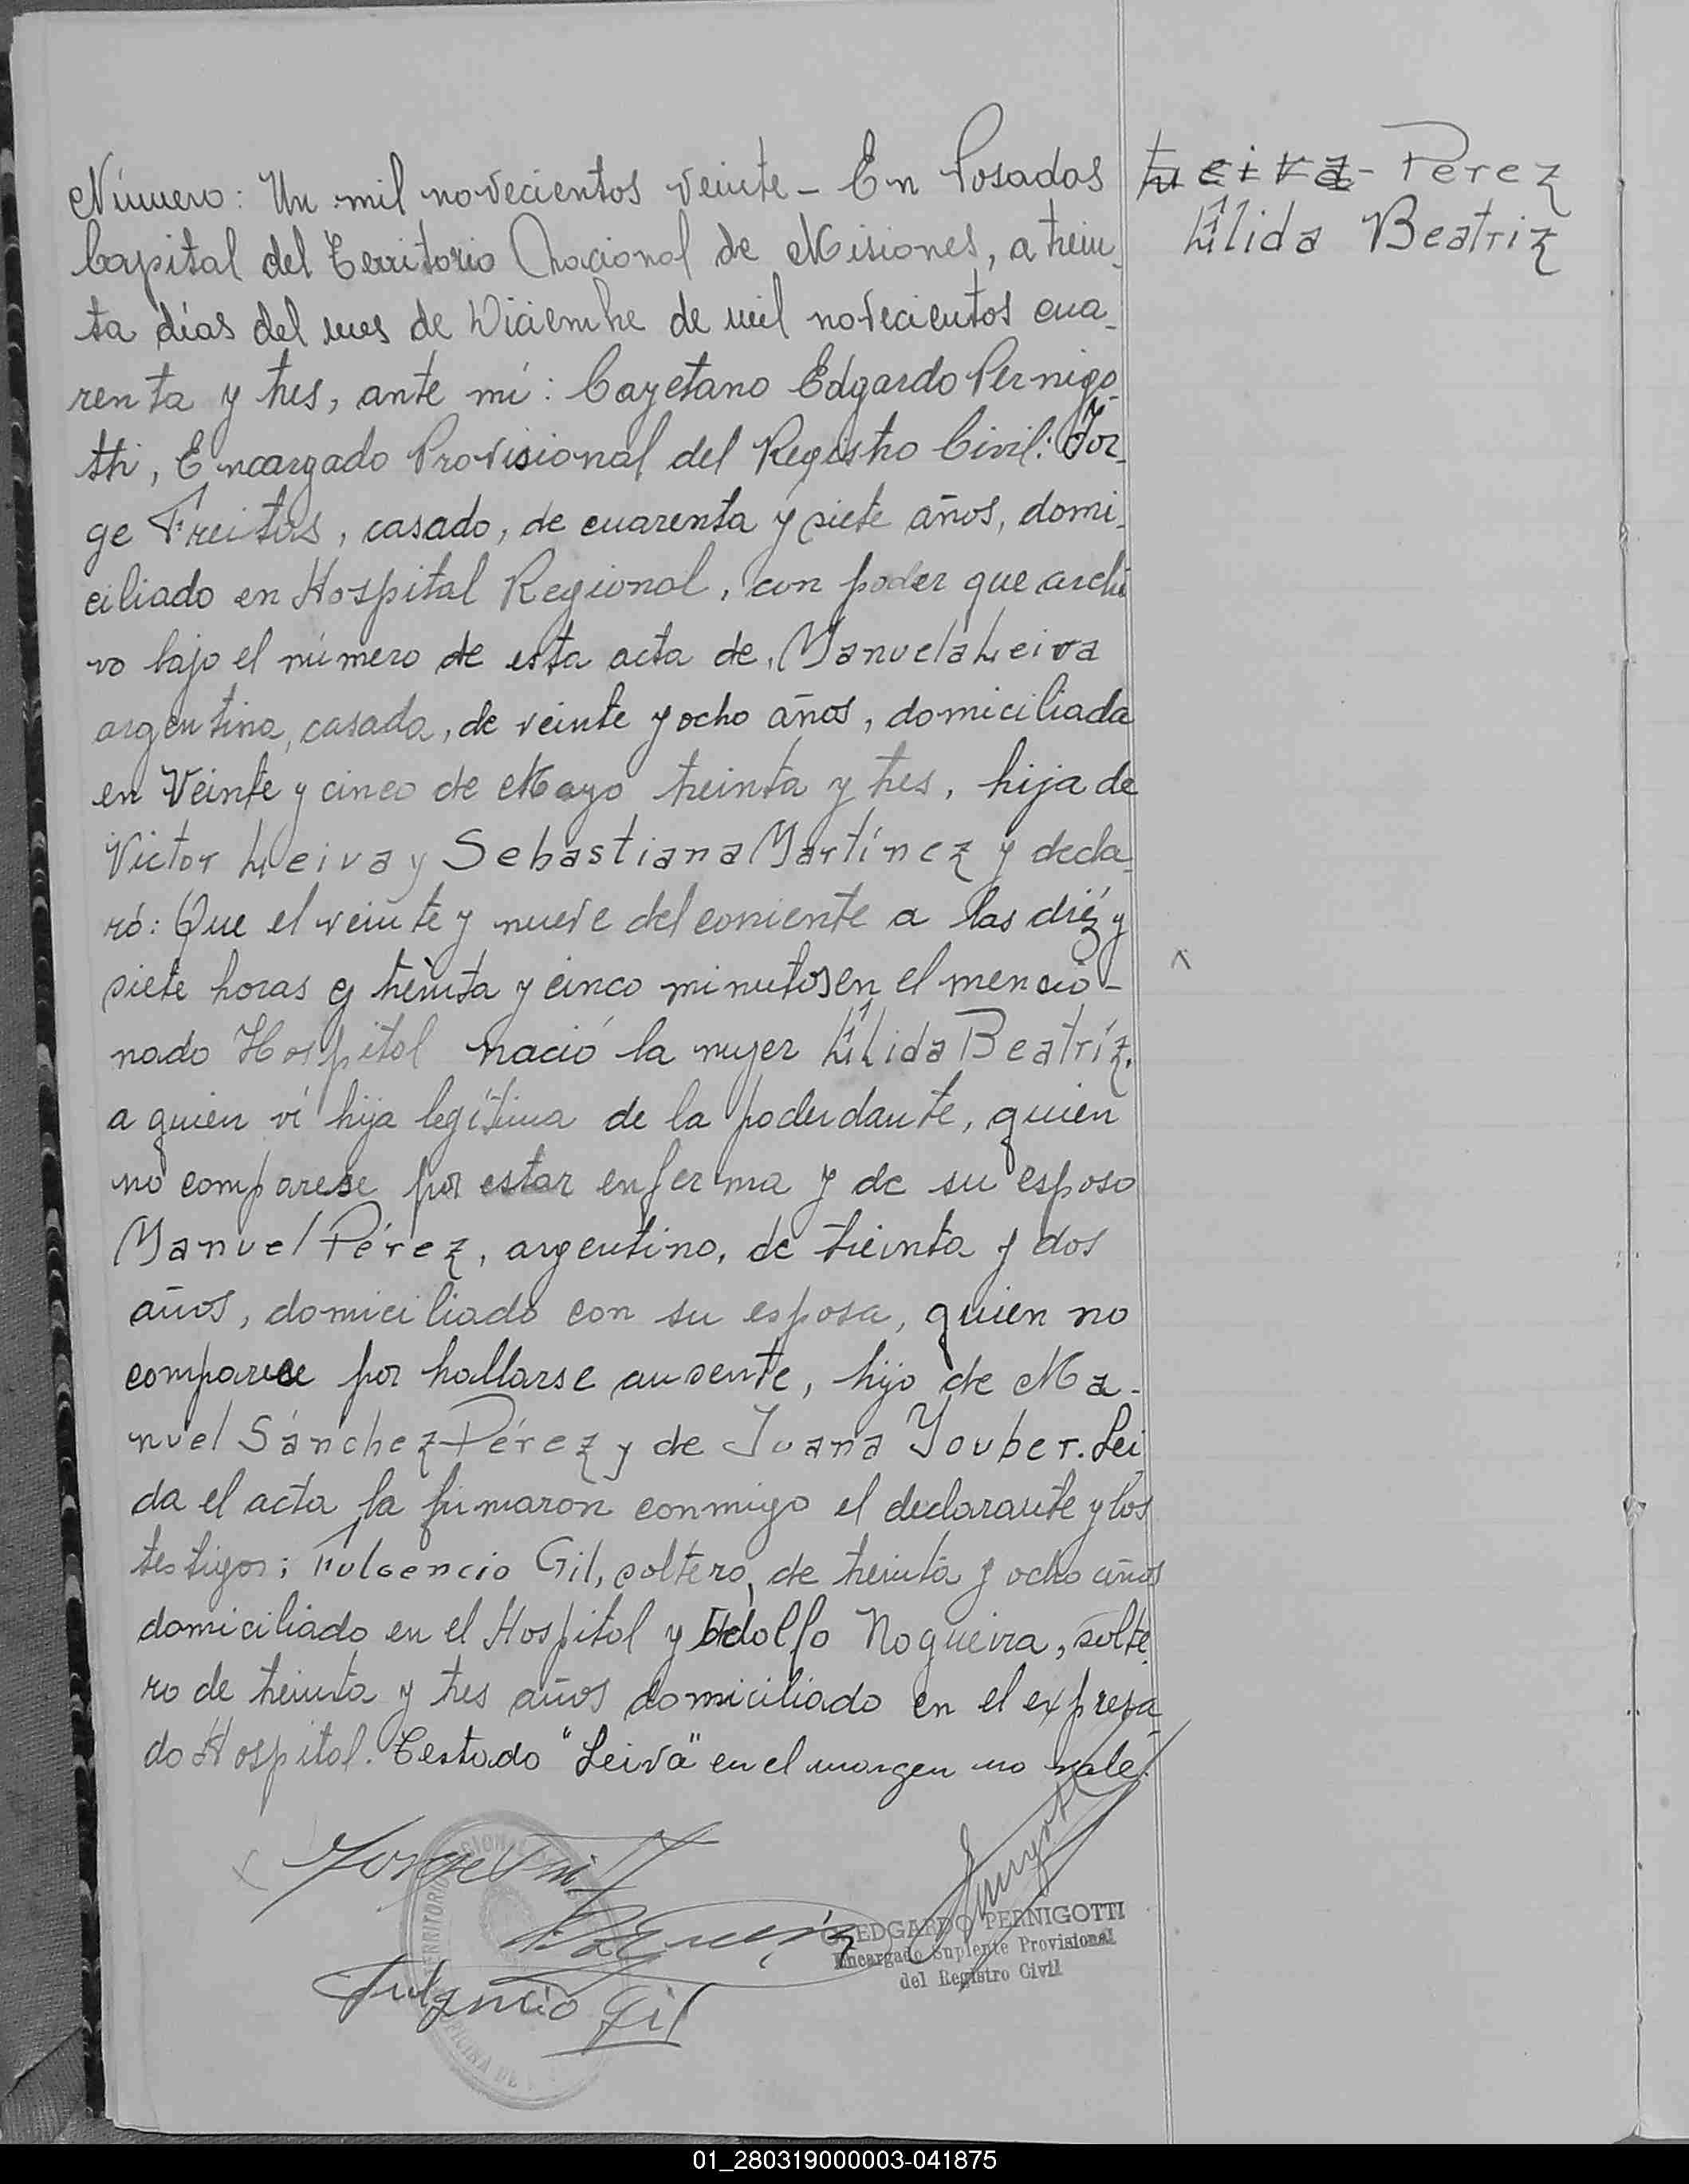 Número: Un mil novecientos veinte - En Posadas
Capital del Territorio Nacional de Misiones, a trein-
ta días del mes de Diciembre de mil novecientos cua-
renta y tres, ante mí: Cayetano Edgardo Pernigo-
tti, Encargado Provisional del Registro Civil: Jor-
ge Freitas, casado, de cuarenta y siete años, domi-
ciliado en Hospital Regional, con poder que archi
vo bajo el número de esta acta de, Manuela Leiva
argentina, casada, de veinte y ocho años, domiciliada
en Veinte y cinco de Mayo treinta y tres, hija de
Victor Leiva y Sebastiana Martínez y decla-
ró: Que el veinte y nueve del corriente a las diéz y
siete horas y treinta y cinco minutos en el mencio-
nado Hospital nació la mujer Lílida Beatríz.
a quien ví hija legítima de la poderdante, quien
no comparese por estar enferma y de su esposo
Manuel Pérez, argentino, de treinta y dos
años, domiciliado con su esposa, quien no
comparece por hallarse ausente, hijo de Ma-
nuel Sánchez Pérez y de Juana Youber. Lei-
da el acta la firmaron conmigo el declarante y los
testigos; Fulgencio Gil, soltero, de treinta y ocho años
domiciliado en el Hospital y Nogueira, solte-
ro de treinta y tres años domiciliado en el expresa-
do Hospital. Testado "Leiva" en el margen no vale.
Leiva - Perez
Lílida Beatriz
Jorge
Fulgencio Gil
C. EDGARDO PERNIGOTTI
Encargado Suplente Provisional
del Registro Civil
01_280319000003-041875